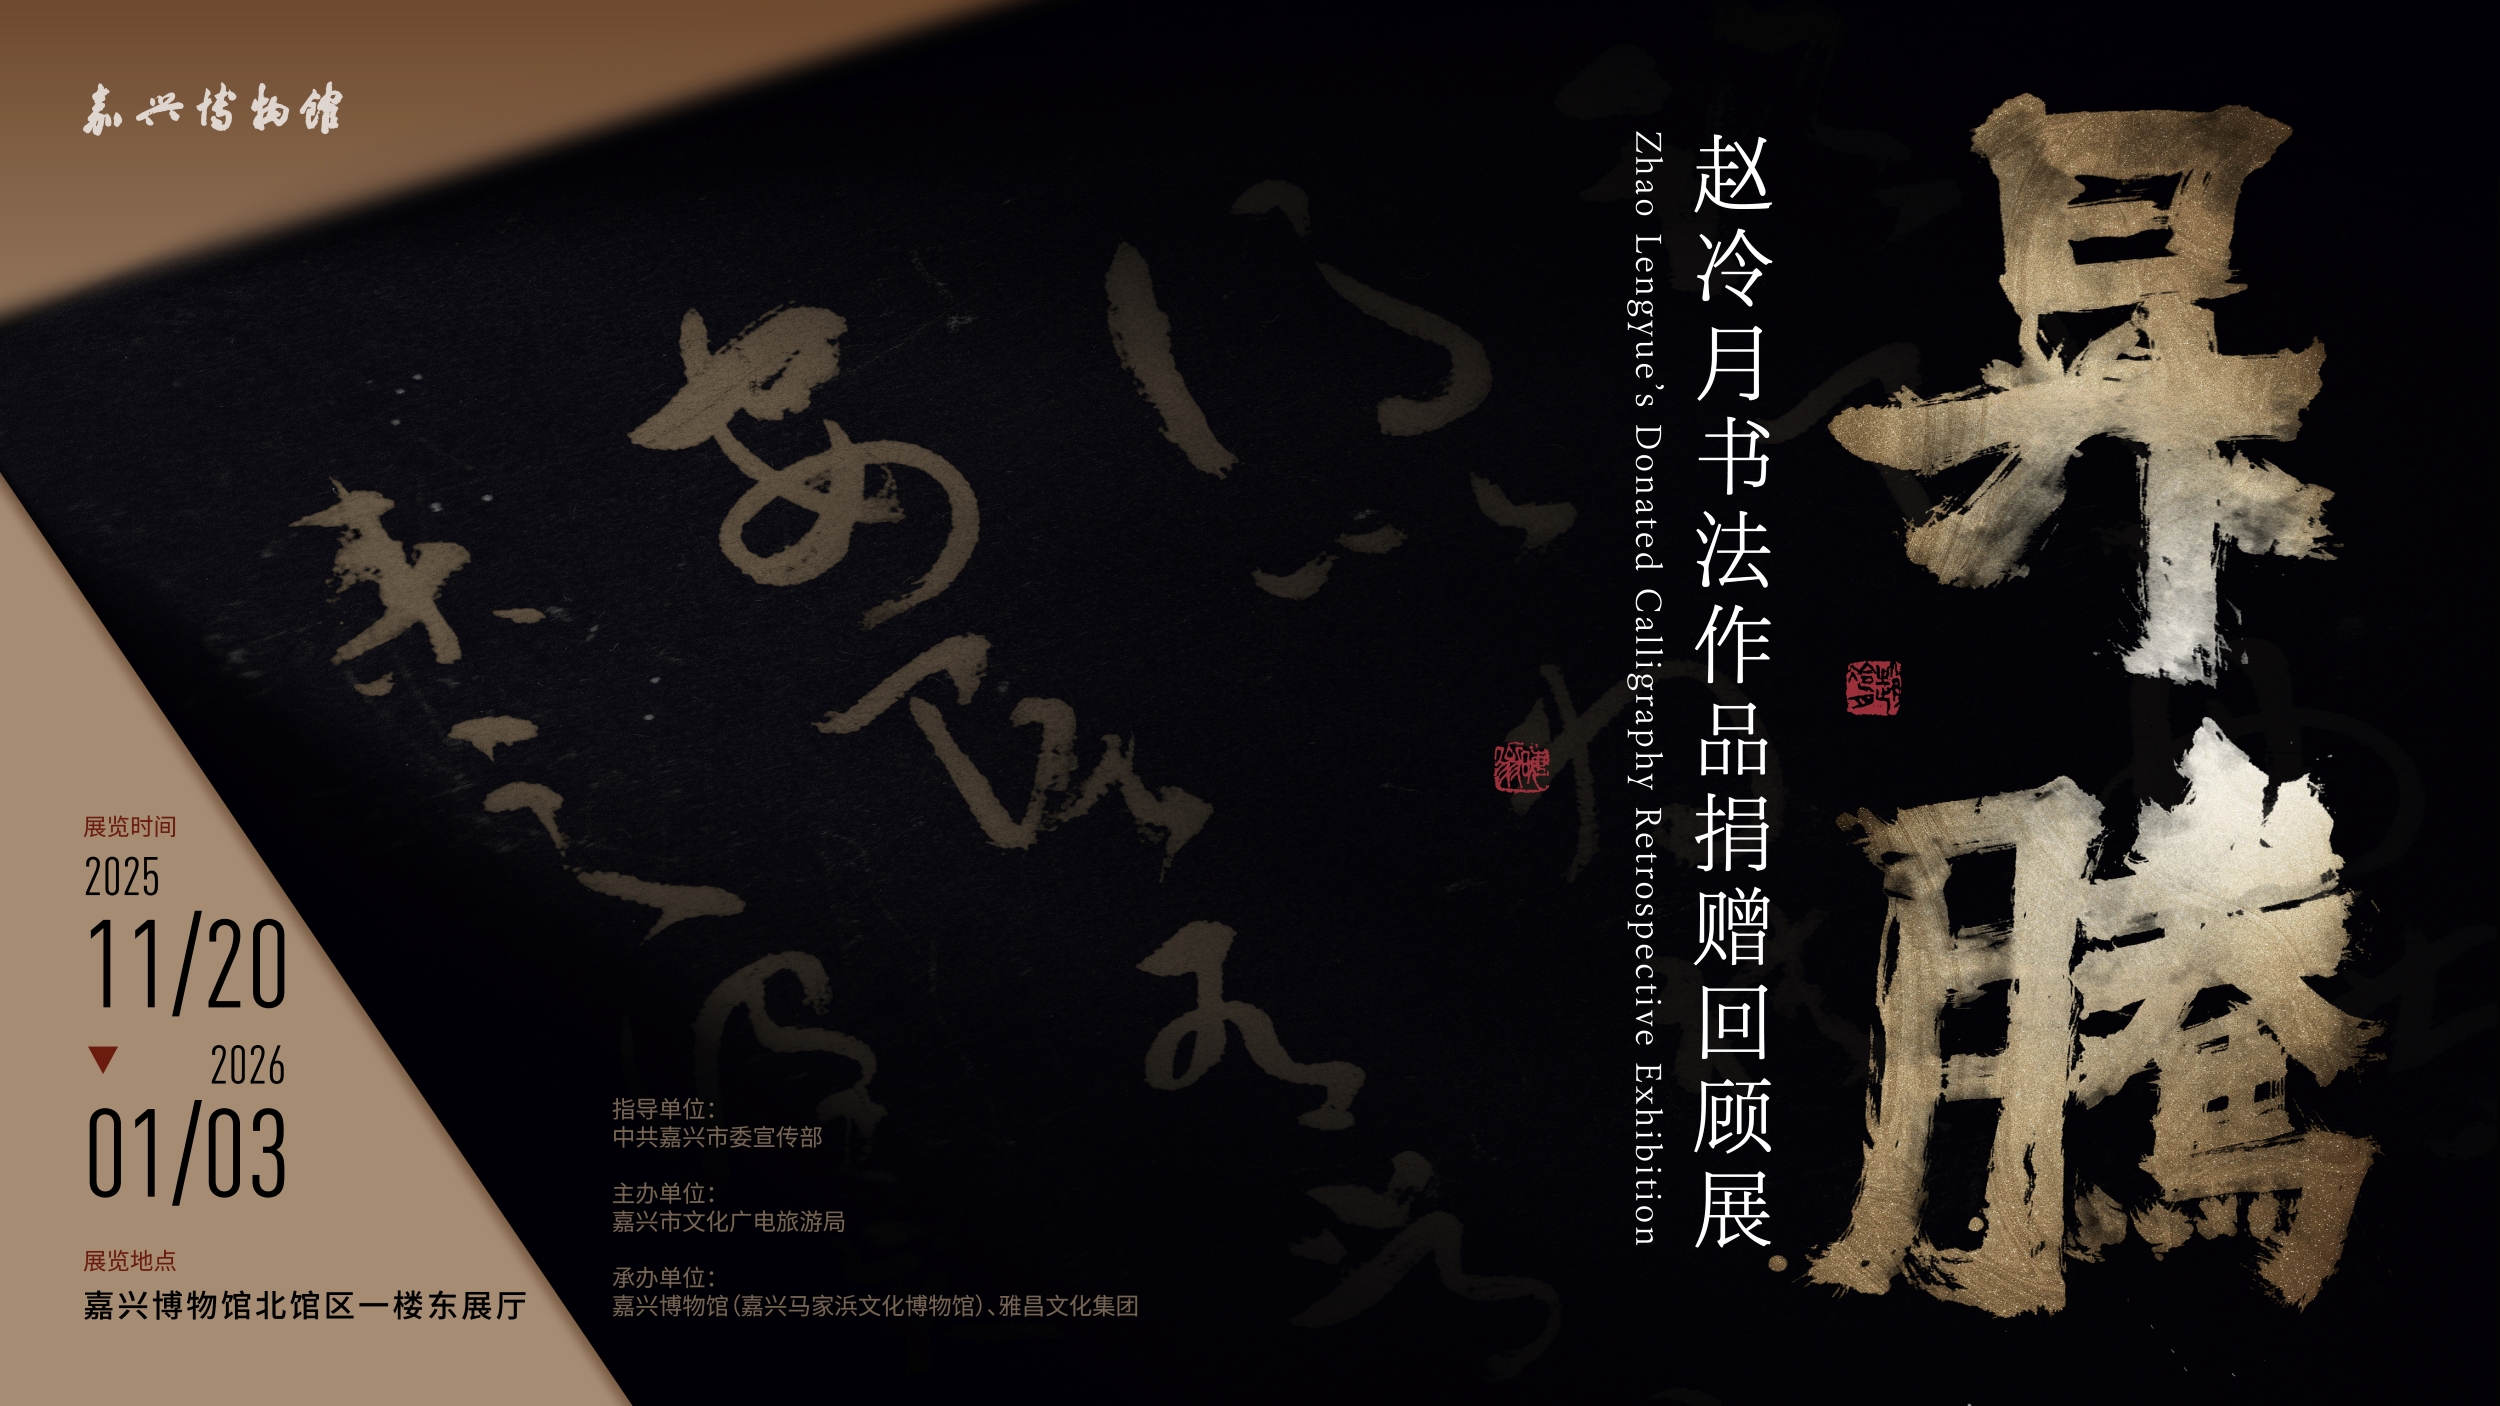 嘉兴博物馆
昇騰
赵冷月书法作品捐赠回顾展
Zhao Lengyue’s Donated Calligraphy Retrospective Exhibition
展览时间
2025
11/20
2026
01/03
展览地点
嘉兴博物馆北馆区一楼东展厅
指导单位：
中共嘉兴市委宣传部
主办单位：
嘉兴市文化广电旅游局
承办单位：
嘉兴博物馆（嘉兴马家浜文化博物馆）、雅昌文化集团